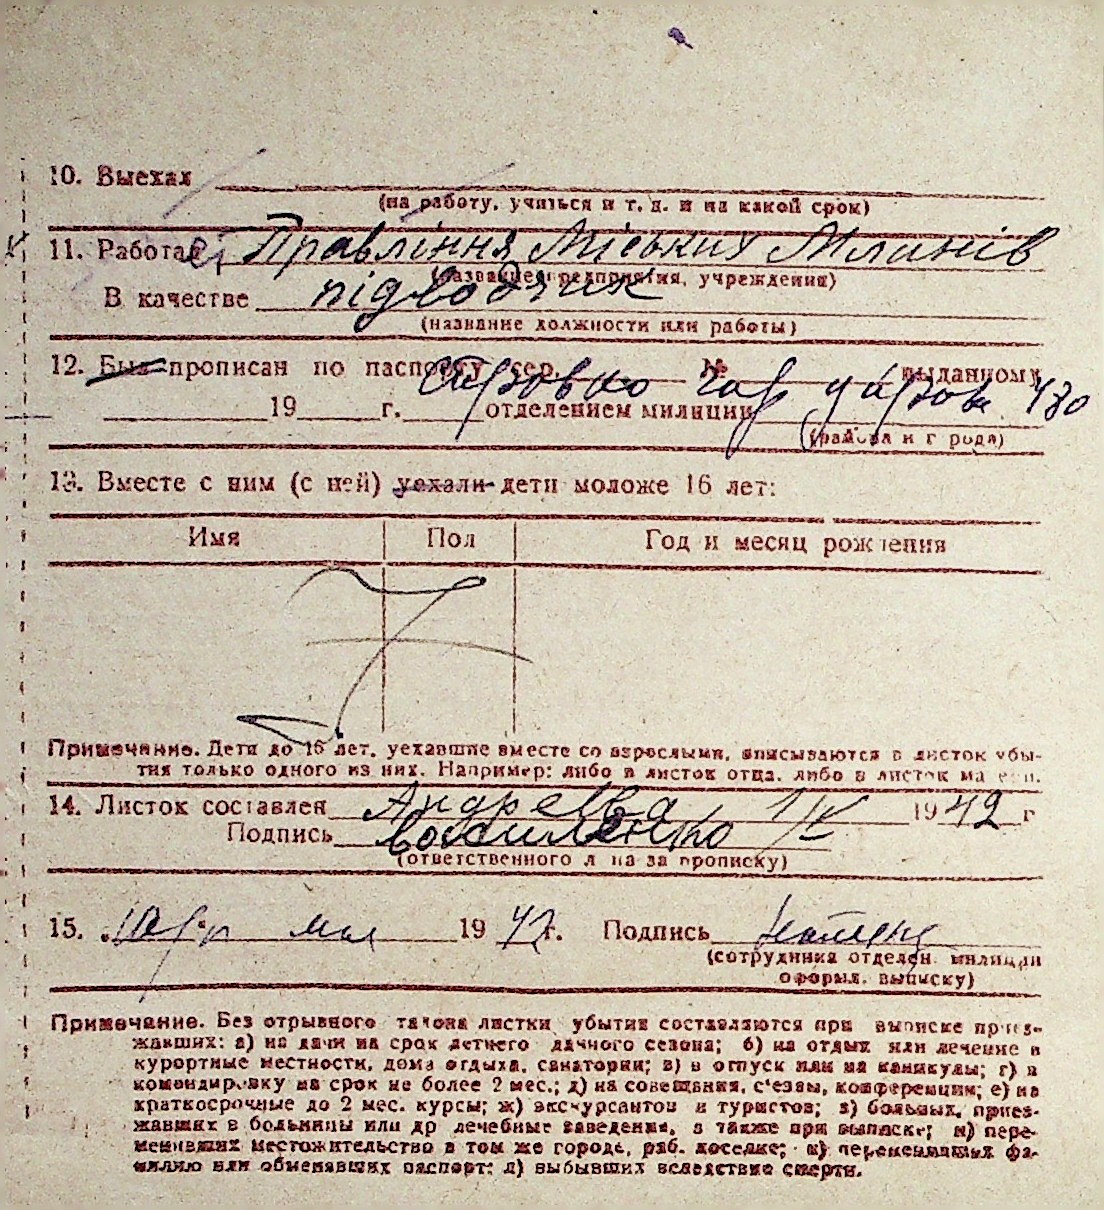 10. Выехал
(на работу, учиться и т. д. и на какой срок)
11. Работает Правління Міських Млинів
(название предприятия, учреждения)
В качестве підводчик
(название должности или работы)
12. Был прописан по паспорту сер. №, выданному
19 г. отделением милиции
(района и города)
13. Вместе с ним (с ней) уехали дети моложе 16 лет:
Имя Пол Год и месяц рождения
Примечание. Дети до 16 лет, уехавшие вместе со взрослыми, вписываются в листок убы-
тия только одного из них. Например: либо в листок отца, либо в листок матери.
14. Листок составлен Андреева 1/V 1942 г
Подпись
(ответственного лица за прописку)
15. 1942 г. Подпись
(сотрудника отделен. милиции
оформ. выписку)
Примечание. Без отрывного талона листки убытия составляются при выписке приез-
жавших: а) на дачи на срок летнего дачного сезона; б) на отдых или лечение в
курортные местности, дома отдыха, санатории; в) в отпуск или на каникулы; г) в
командировку на срок не более 2 мес.; д) на совещания, с'езды, конференции; е) на
краткосрочные до 2 мес. курсы; ж) экскурсантов и туристов; з) больных, приез-
жавших в больницы или др лечебные заведения, а также при выписке; и) пере-
менивших местожительство в том же городе, раб. поселке; к) переменивших фа-
милию или обменявших паспорт; л) выбывших вследствие смерти.